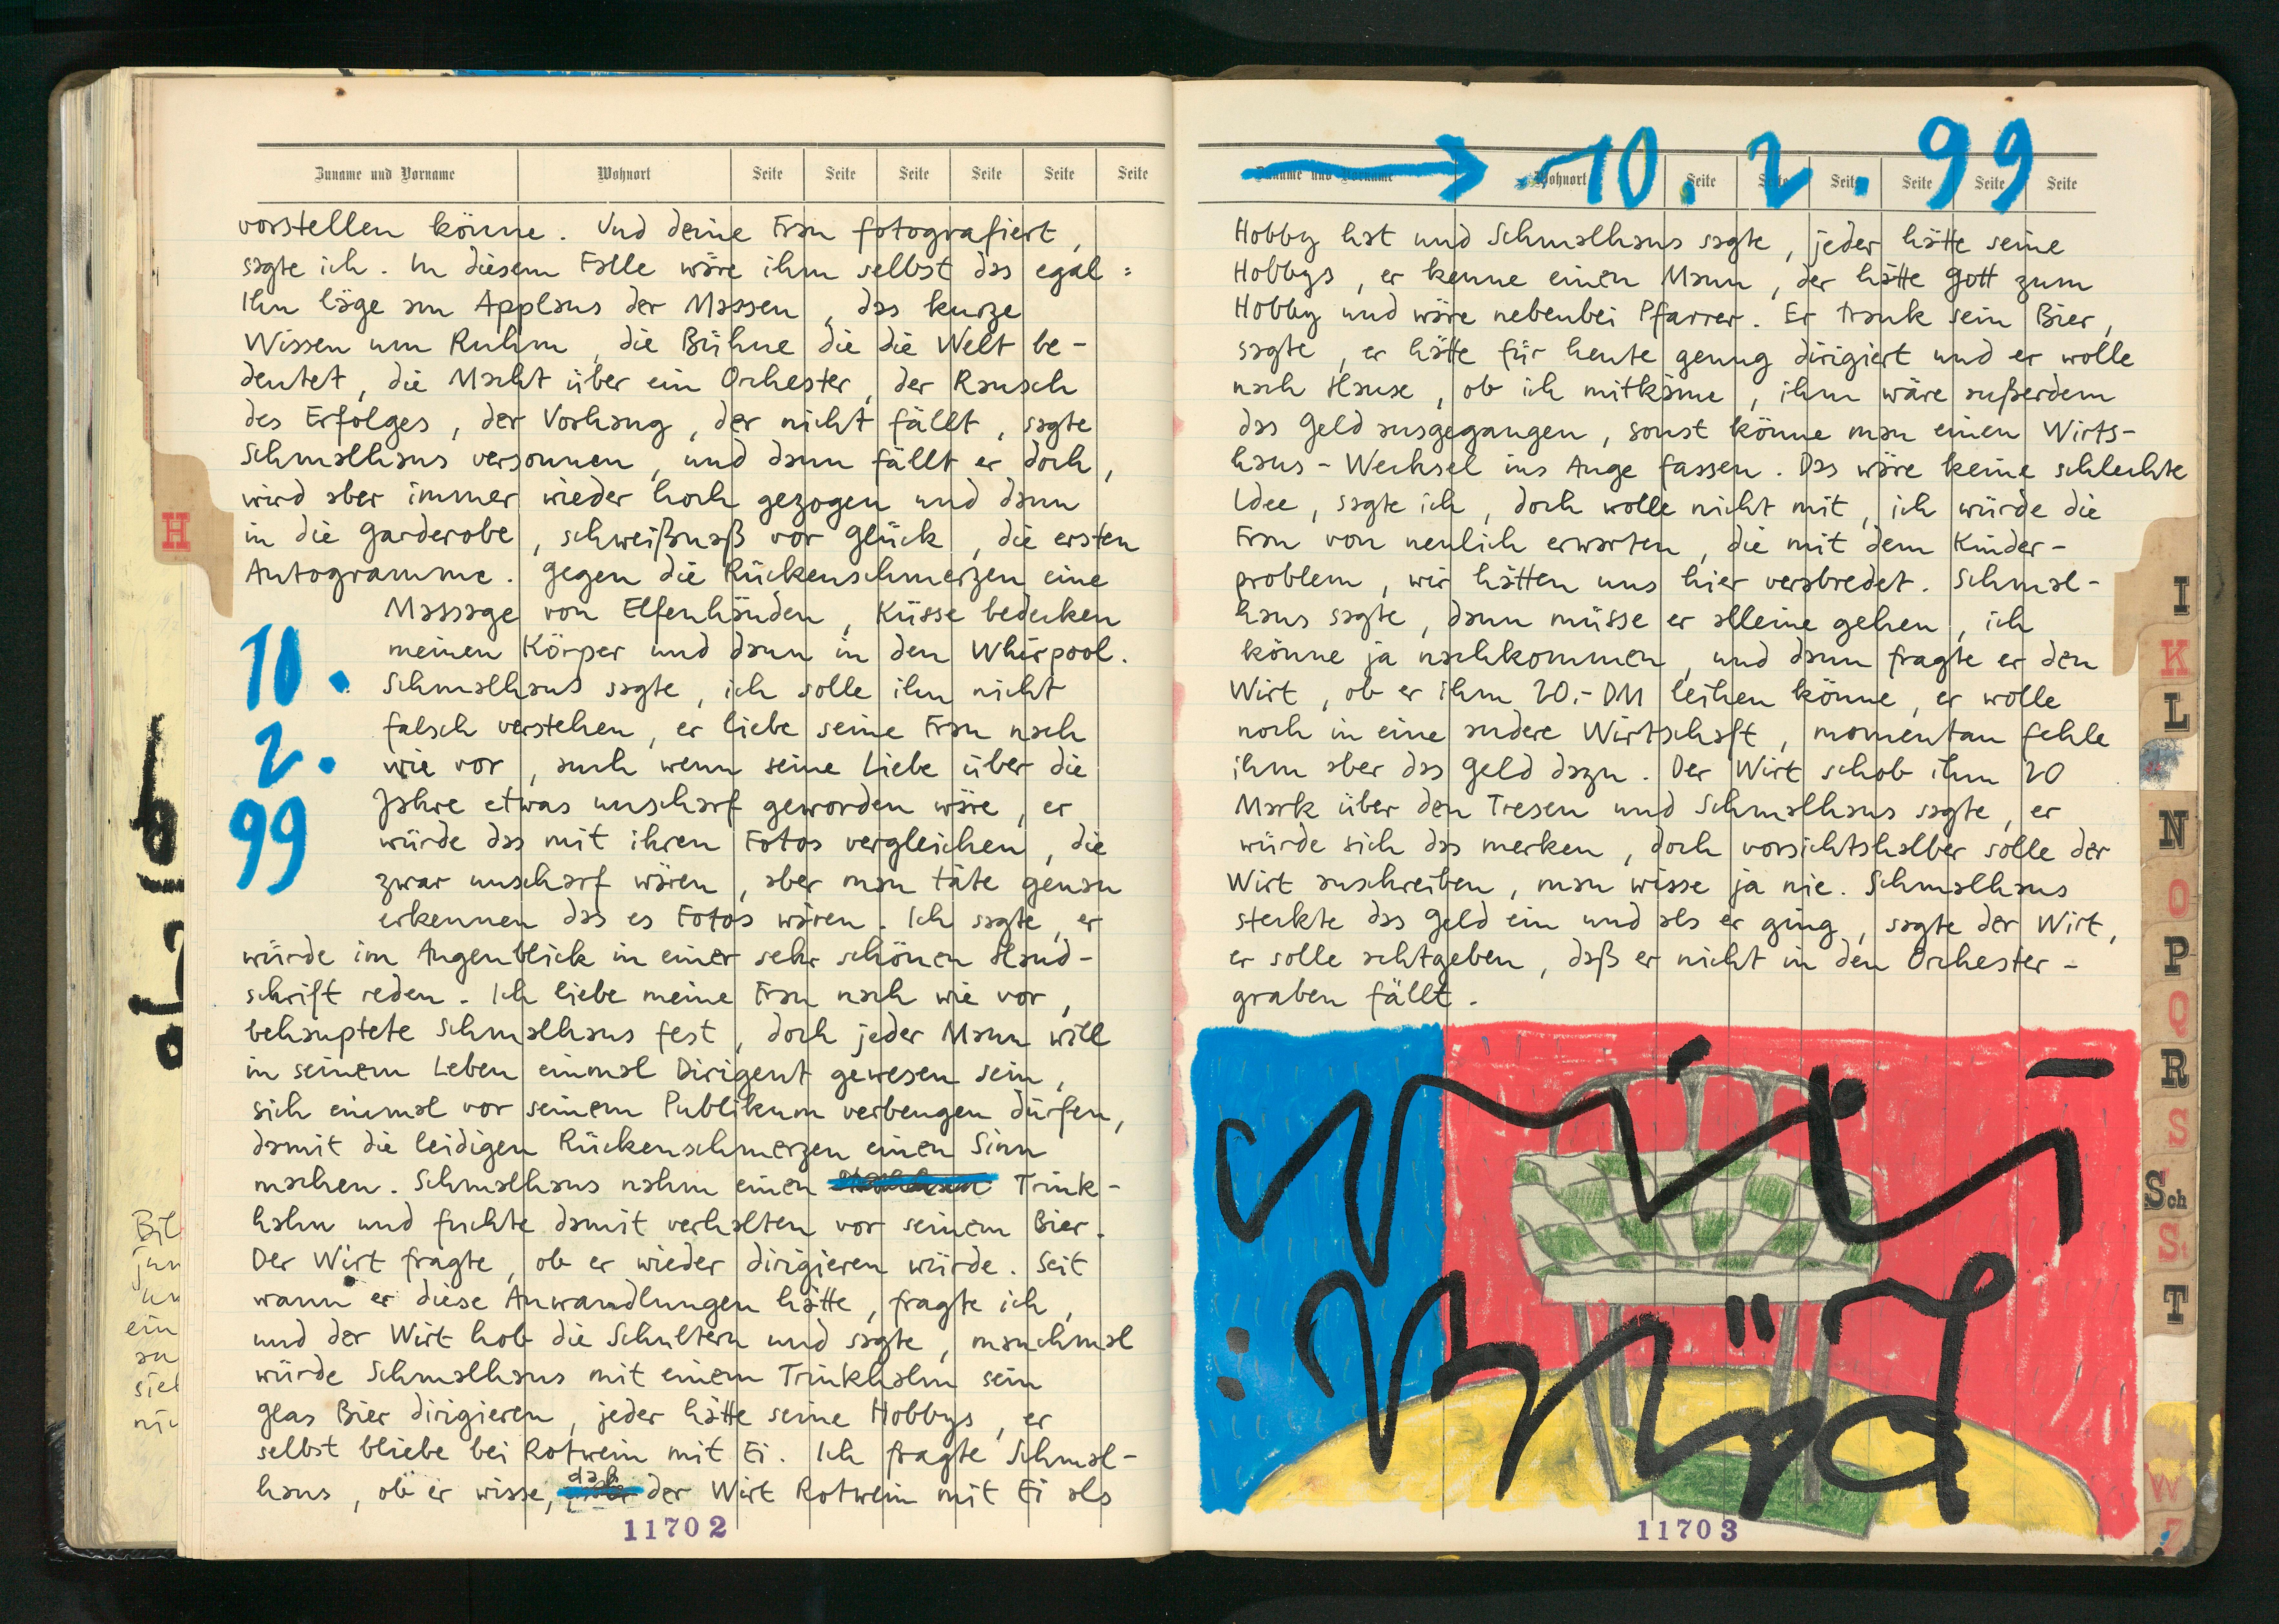 Zuname und Vorname Wohnort Seite Seite Seite Seite Seite Seite
vorstellen könne. Und deine Frau fotografiert,
sagte ich. In diesem Falle wäre ihm selbst das egal:
Ihm läge am Applaus der Massen, das kurze
Wissen um Ruhm, die Bühne die die Welt be-
deutet, die Macht über ein Orchester, der Rausch
des Erfolges, der Vorhang, der nicht fällt, sagte
Schmalhans versonnen, und dann fällt er doch,
wird aber immer wieder hoch gezogen und dann
in die Garderobe, schweißnaß vor Glück, die ersten
Autogramme. Gegen die Rückenschmerzen eine
Massage von Elfenhänden, Küsse bedecken
meinen Körper und dann in den Whirpool.
Schmalhans sagte, ich solle ihn nicht
falsch verstehen, er liebe seine Frau nach
wie vor, auch wenn seine Liebe über die
Jahre etwas unscharf geworden wäre, er
würde das mit ihren Fotos vergleichen, die
zwar unscharf wären, aber man täte genau
erkennen das es Fotos wären. Ich sagte, er
würde im Augenblick in einer sehr schönen Hand-
schrift reden. Ich liebe meine Frau nach wie vor,
behauptete Schmalhans fest, doch jeder Mann will
in seinem Leben einmal Dirigent gewesen sein,
sich einmal vor seinem Publikum verbeugen dürfen,
damit die leidigen Rückenschmerzen einen Sinn
machen. Schmalhans nahm einen Trink-
halm und fuchte damit verhalten vor seinem Bier.
Der Wirt fragte, ob er wieder dirigieren würde. Seit
wann er diese Anwandlungen hätte, fragte ich,
und der Wirt hob die Schultern und sagte, manchmal
würde Schmalhans mit einem Trinkhalm sein
Glas Bier dirigieren, jeder hätte seine Hobbys, er
selbst bliebe bei Rotwein mit Ei. Ich fragte Schmal-
hans, ob er wisse, daß der Wirt Rotwein mit Ei als
10.
2.
99
H
11702
Zuname und Vorname Wohnort Seite Seite Seite Seite Seite Seite
10. 2. 99
Hobby hat und Schmalhans sagte, jeder hätte seine
Hobbys, er kenne einen Mann, der hätte Gott zum
Hobby und wäre nebenbei Pfarrer. Er trank sein Bier,
sagte, er hätte für heute genug dirigiert und er wolle
nach Hause, ob ich mitkäme, ihm wäre außerdem
das Geld ausgegangen, sonst könne man einen Wirts-
haus-Wechsel ins Auge fassen. Das wäre keine schlechte
Idee, sagte ich, doch wolle nicht mit, ich würde die
Frau von neulich erwarten, die mit dem Kinder-
problem, wir hätten uns hier verabredet. Schmal-
hans sagte, dann müsse er alleine gehen, ich
könne ja nachkommen, und dann fragte er den
Wirt, ob er ihm 20.- DM leihen könne, er wolle
noch in eine andere Wirtschaft, momentan fehle
ihm aber das Geld dazu. Der Wirt schob ihm 20
Mark über den Tresen und Schmalhans sagte, er
würde sich das merken, doch vorsichtshalber solle der
Wirt anschreiben, man wisse ja nie. Schmalhans
steckte das Geld ein und als er ging, sagte der Wirt,
er solle achtgeben, daß er nicht in den Orchester-
graben fällt.
11703
I
K
L
N
O
P
Q
R
S
Sch
St
T
W
Z